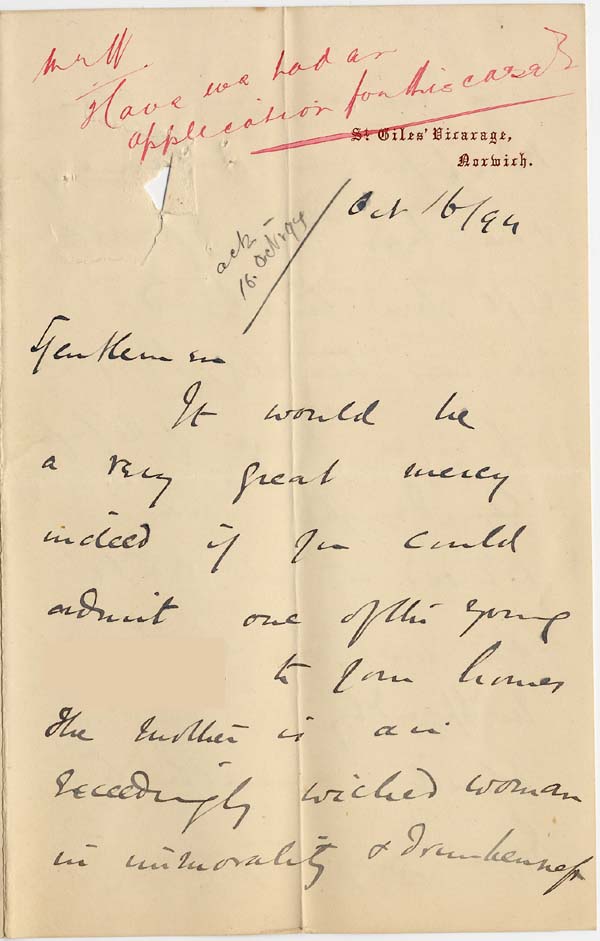 Mr W.
Have we had an
application for this case?
St Giles' Vicarage,
Norwich.
Oct 16/94
ack
16. Oct. 94
Gentlemen
It would be
a very great mercy
indeed if you could
admit one of the young
to your homes
The mother is an
exceedingly wicked woman
in immorality & drunkenness